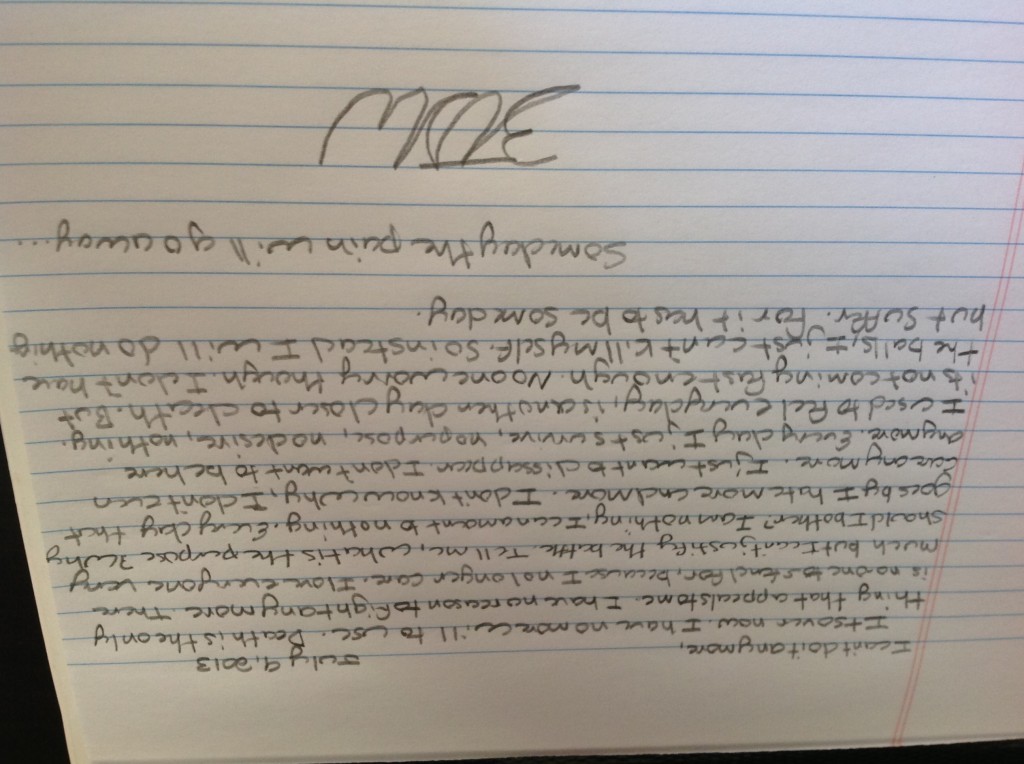 I can't do it anymore, July 9, 2013
Its over now. I have no more will to use. Death is the only
thing that appeals to me. I have no reason to fight anymore. There
is no one to stand for, because I no longer care. I love everyone very
much but I cant justify the battle. Tell me, what is the purpose & why
should I bother? I am nothing, I can amant to nothing. Every day that
goes by I hate more and more. I don't know why, I don't even
care anymore. I just want to dissappear. I don't want to be here
anymore. Every day I just survive, no purpose, no desire, nothing.
I used to feel everyday, is another day closer to death. But
it's not coming fast enough. No one though. I don't have
the balls, I just can't kill myself. So instead I will do nothing
but suffer. For it has to be some day.
Someday the pain will go away...